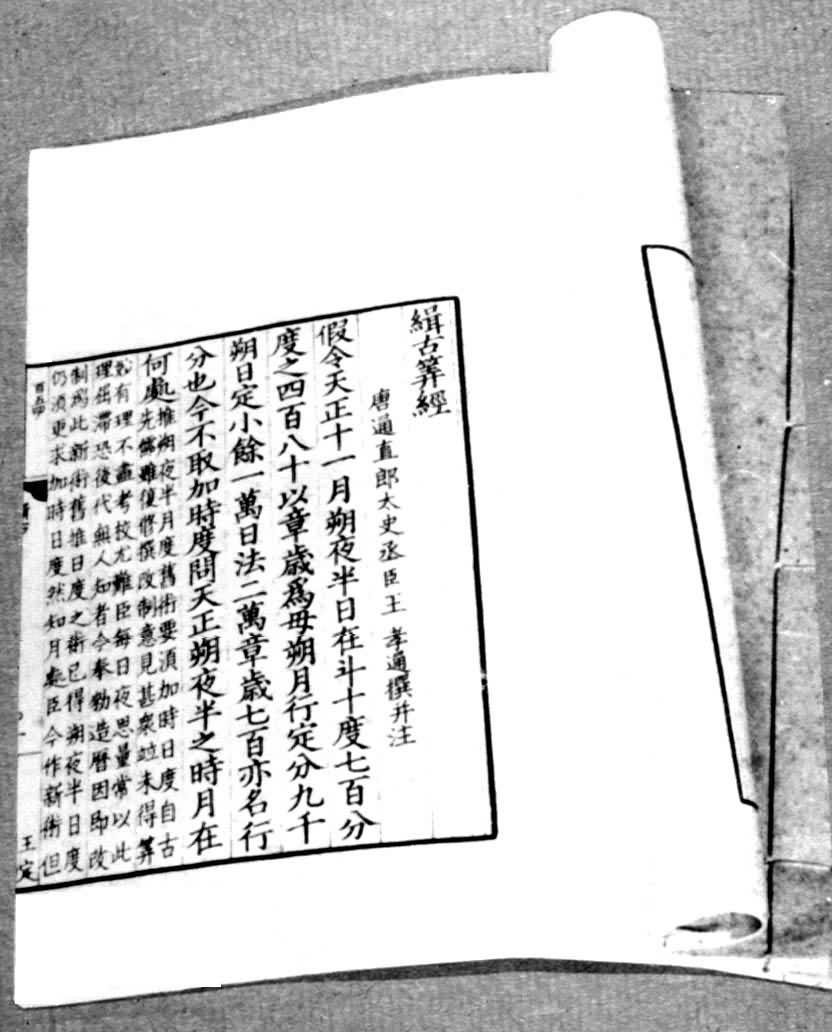 緝古筭經
唐通直郎太史丞臣王孝通撰并注
假令天正十一月朔夜半日在斗十度七百分
度之四百八十以章歲爲母朔月行定分九千
朔日定小餘一萬日法二萬章歲七百亦名行
分也今不取加時度問天正朔夜半之時月在
何處
推朔夜半月度舊術要須加時日度自古
先儒雖復修撰改制意見甚衆竝未得筭
妙有理不盡考校尤難臣每日夜思量常以此
理屈滯恐後代無人知者今奉勑造曆因即改
制爲此新術舊推日度之術已得朔夜半日度
仍須更求加時日度然知月處臣今作新術但
王定